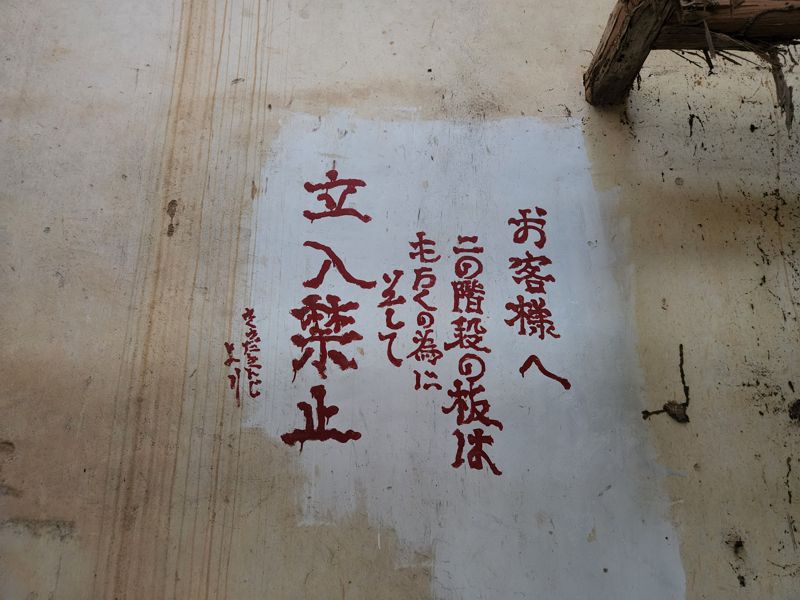 お客様へ
この階段の板は
もろくの為に
そして
立入禁止
より